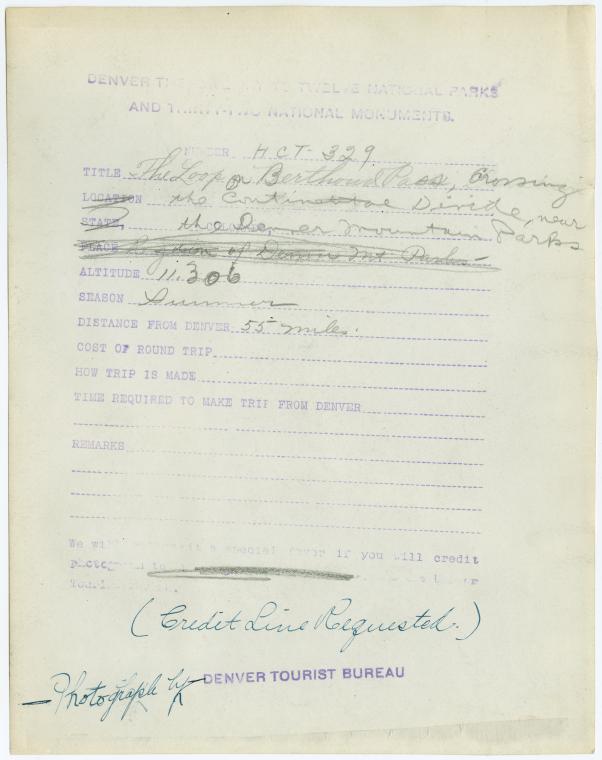 DENVER THE GATEWAY TO TWELVE NATIONAL PARKS
AND THIRTY-TWO NATIONAL MONUMENTS.
NUMBER HCT-329
TITLE The Loop on Berthoud Pass, Crossing
LOCATION the Continental Divide, near
STATE, the Denver Mountain Parks
PLACE Region of Denver Mt. Parks
ALTITUDE 11,306
SEASON Summer
DISTANCE FROM DENVER 55 miles.
COST OF ROUND TRIP
HOW TRIP IS MADE
TIME REQUIRED TO MAKE TRIP FROM DENVER
REMARKS
We will a special favor if you will credit
photograph to
(Credit Line Requested.)
—Photograph by DENVER TOURIST BUREAU